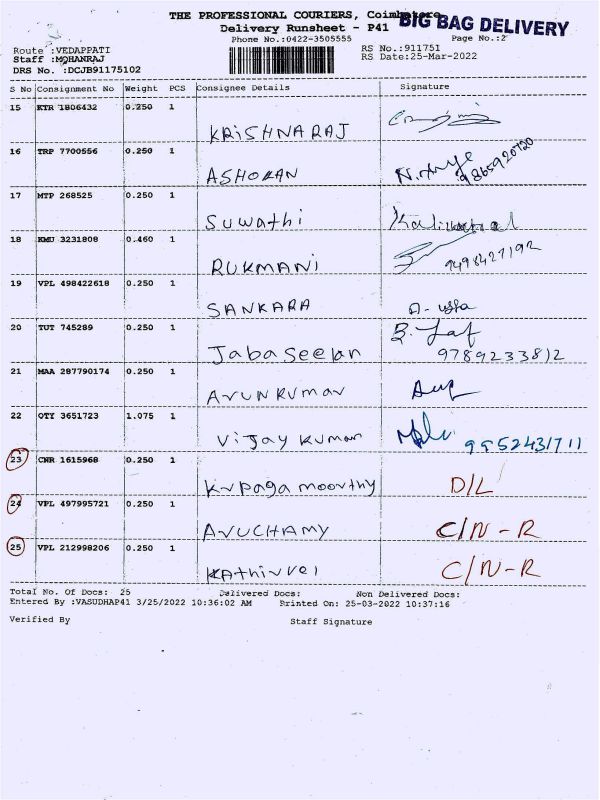 THE PROFESSIONAL COURIERS, Coimbatore
BIG BAG DELIVERY
Delivery Runsheet - P41
Phone No.:0422-3505555 Page No.:2
Route :VEDAPPATI RS No.:911751
Staff :MOHANRAJ RS Date:25-Mar-2022
DRS No. :DCJB91175102
S No Consignment No Weight PCS Consignee Details Signature
15 KTR 1806432 0.250 1
KRISHNARAJ
16 TRP 7700556 0.250 1
ASHOKAN 9865920720
17 MTP 268525 0.250 1
Suwathi
18 KMU 3231808 0.460 1
RUKMANI 9498427192
19 VPL 498422618 0.250 1
SANKARA
20 TUT 745289 0.250 1
Jabaseelan 9789233812
21 MAA 287790174 0.250 1
Arunkumar
22 QTY 3651723 1.075 1
Vijay kumar 9952431711
23 CNR 1615968 0.250 1
Krpaga moorthy D/L
24 VPL 497995721 0.250 1
ARUCHAMY C/N-R
25 VPL 212998206 0.250 1
Kathirvel C/N-R
Total No. Of Docs: 25 Delivered Docs: Non Delivered Docs:
Entered By :VASUDHAP41 3/25/2022 10:36:02 AM Printed On: 25-03-2022 10:37:16
Verified By Staff Signature